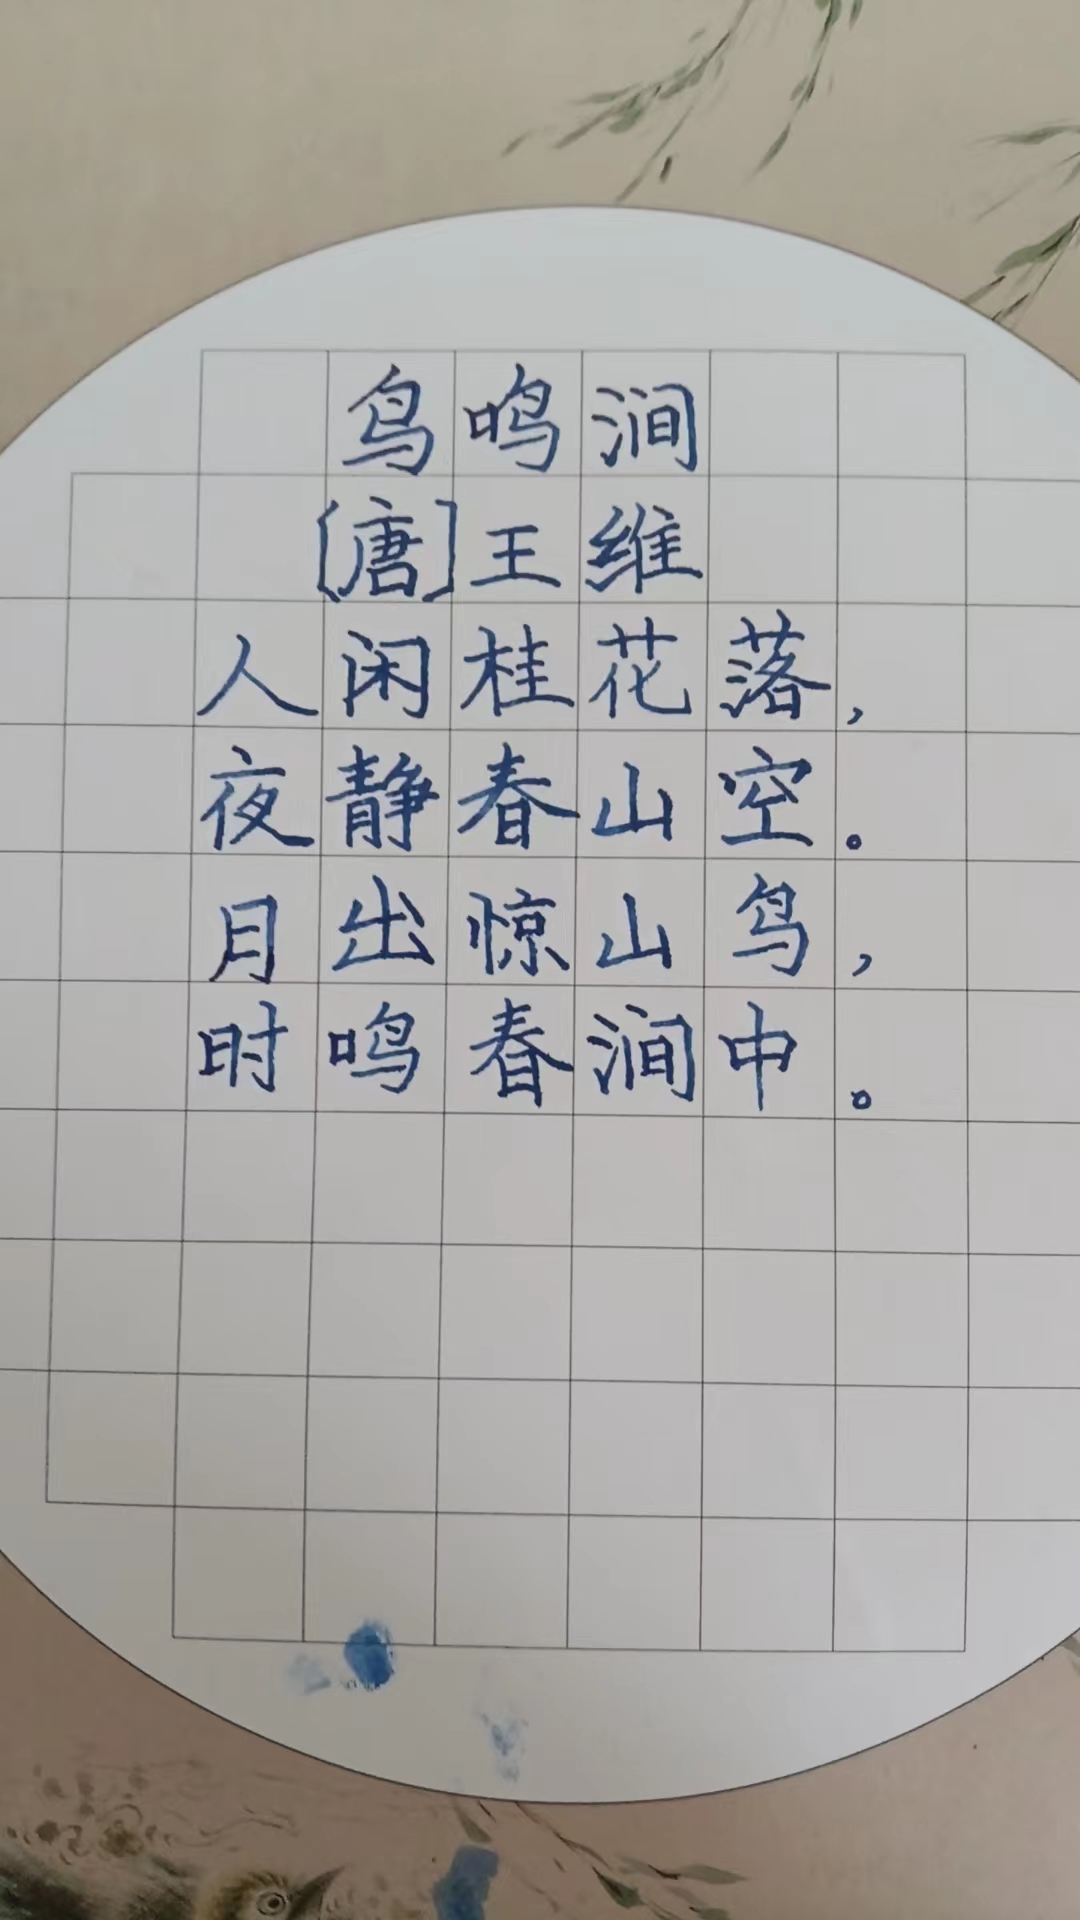 鸟鸣涧
[唐]王维
人闲桂花落,
夜静春山空。
月出惊山鸟,
时鸣春涧中。